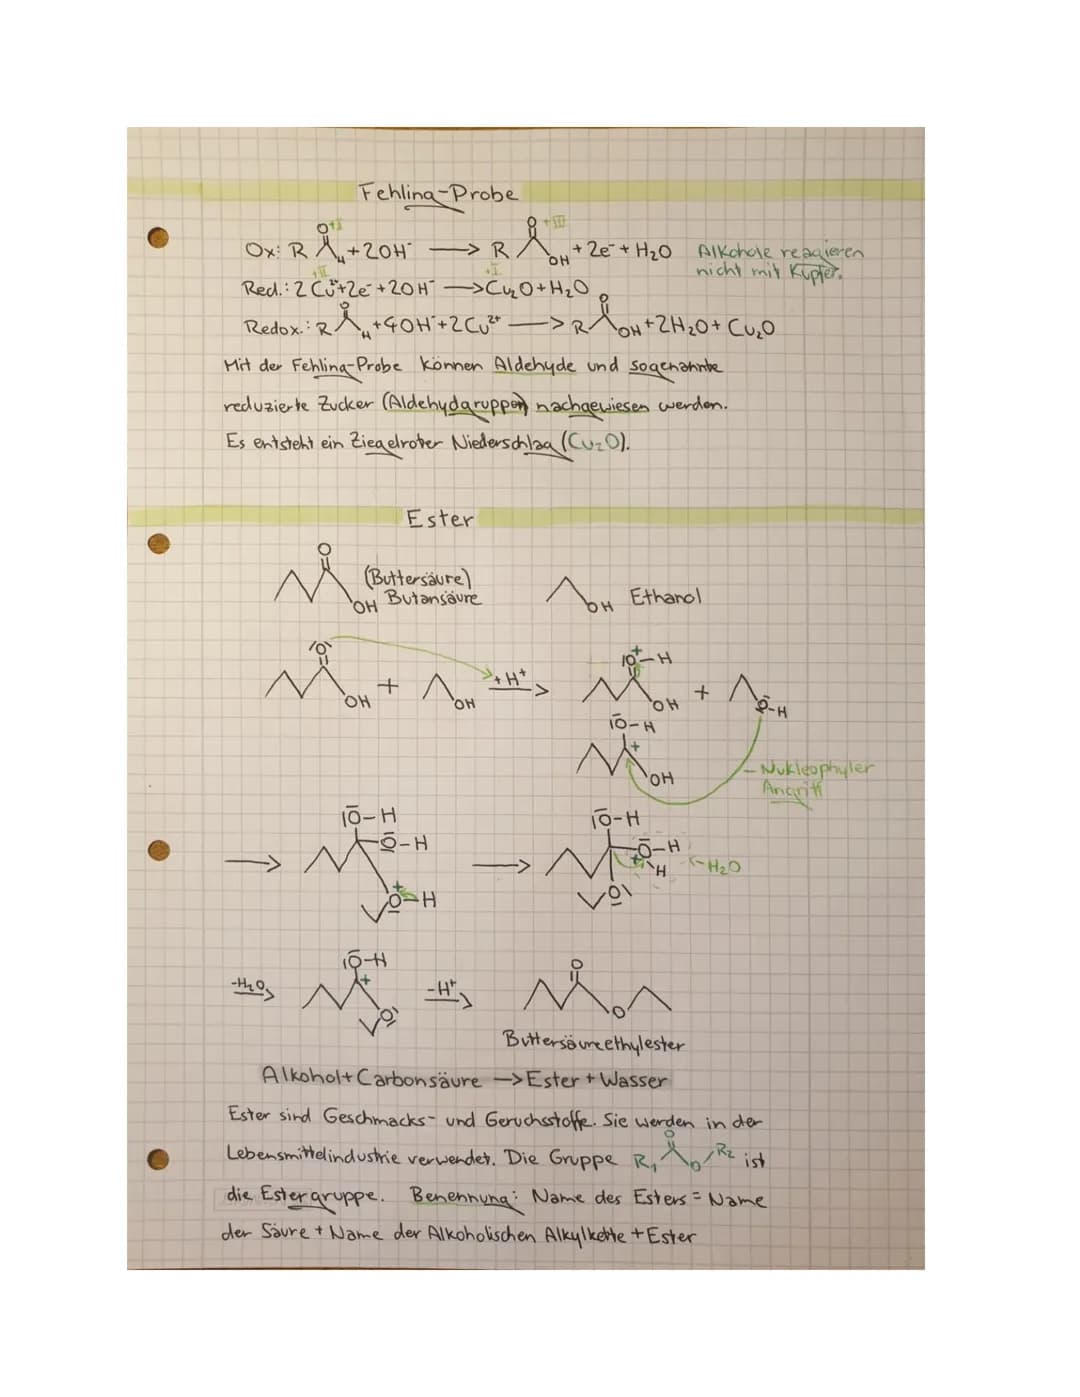 Fehling-Probe
+I +III
Ox: R O H + 2OH⁻ → R O OH + 2e⁻ + H₂O Alkohole reagieren
nicht mit Kupfer.
+II +I
Red.: 2 Cu²⁺ + 2e⁻ + 2OH⁻ → Cu₂O + H₂O
Redox.: R O H + 4OH⁻ + 2Cu²⁺ → R O OH + 2H₂O + Cu₂O
Mit der Fehling-Probe können Aldehyde und sogenannte
reduzierte Zucker (Aldehydgruppen) nachgewiesen werden.
Es entsteht ein Ziegelroter Niederschlag (Cu₂O).
Ester
O OH (Buttersäure)
Butansäure
OH Ethanol
O OH + OH + H⁺ → O⁺-H OH + O-H
O-H + OH
- Nukleophyler
Angriff
→ O-H O-H O⁺-H → O-H O⁺-H H O - H₂O
-H₂O → O-H + O -H⁺ → O O
Buttersäureethylester
Alkohol + Carbonsäure → Ester + Wasser
Ester sind Geschmacks- und Geruchsstoffe. Sie werden in der
Lebensmittelindustrie verwendet. Die Gruppe R₁ O O R₂ ist
die Estergruppe. Benennung: Name des Esters = Name
der Säure + Name der Alkoholischen Alkylkette + Ester